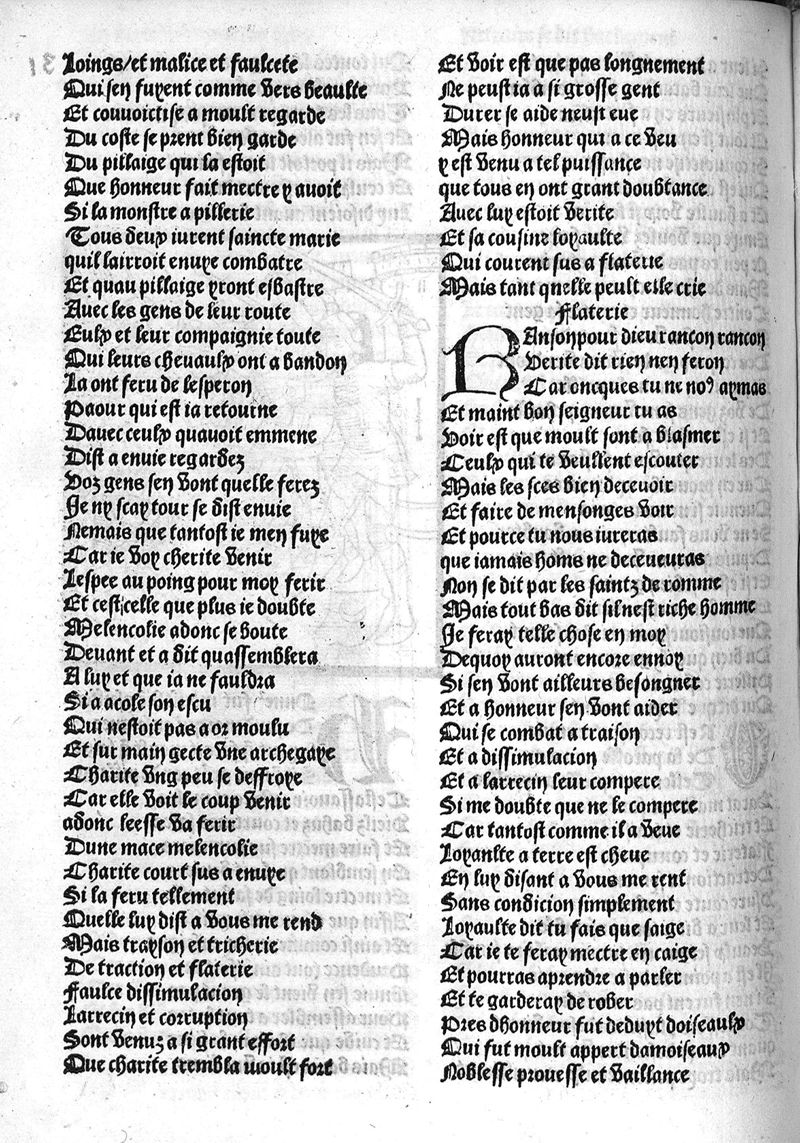 31
Loings/et malice et faulcete
Qui sen fuyent comme vers beaulte
Et couuoictise a moult regarde
Du coste se prent bien garde
Du pillaige qui la estoit
Que honneur fait mectre y auoit
Si la monstre a pillerie
Tous deux iurent saincte marie
quil lairroit enuye combatre
Et quau pillaige yront esbastre
Auec les gens de leur route
Eulx et leur compaignie toute
Qui leurs cheuaulx ont a bandon
La ont feru de lesperon
Paour qui est ia retourne
Dauec ceulx quauoit emmene
Dist a enuie regardez
Voz gens sen vont quelle ferez
Je ny scay tour se dist enuie
Nemais que tantost ie men fuye
Car ie voy cherite venir
Lespee au poing pour moy ferir
Et cest celle que plus ie doubte
Melencolie adonc se boute
Deuant et a dit quassemblera
A luy et que ia ne fauldra
Si a acole son escu
Qui nestoit pas a or moulu
Et sur main gecte vne archegaye
Charite vng peu se deffroye
Car elle voit le coup venir
adonc leesse va ferir
Dune mace melencolie
Charite court sus a enuye
Si la feru tellement
Quelle luy dist a vous me rend
Mais trayson et tricherie
De traction et flaterie
Faulce dissimulacion
Larrecin et corruption
Sont venuz a si grant effort
Que charite trembla moult fort
Et voir est que pas longnement
Ne peust ia a si grosse gent
Durer se aide neust eue
Mais honneur qui a ce veu
y est venu a tel puissance
que tous en ont grant doubtance
Auec luy estoit verite
Et sa cousine loyaulte
Qui courent sus a flaterie
Mais tant quelle peult elle crie
Flaterie
RAnson pour dieu rancon rancon
Verite dit rien nen feron
Car oncques tu ne noꝰ aymas
Et maint bon seigneur tu as
Voir est que moult sont a blasmer
Ceulx qui te veullent escouter
Mais les sces bien deceuoir
Et faire de mensonges voir
Et pource tu nous iureras
que iamais homs ne deceueuras
Non se dit par les saintz de romme
Mais tout bas dit sil nest riche homme
Je feray telle chose en moy
Dequoy auront encore ennoy
Si sen vont ailleurs besongner
Et a honneur sen vont aider
Qui se combat a traison
Et a dissimulacion
Et a larrecin leur compere
Si me doubte que ne le compere
Car tantost comme il a veue
Loyaulte a terre est cheue
En luy disant a vous me rent
Sans condicion simplement
Loyaulte dit tu fais que saige
Car ie te feray mectre en caige
Et pourras aprendre a parler
Et te garderay de rober
Pres dhonneur fut deduyt doiseaulx
Qui fut moult appert damoiseaux
Noblesse prouesse et vaillance